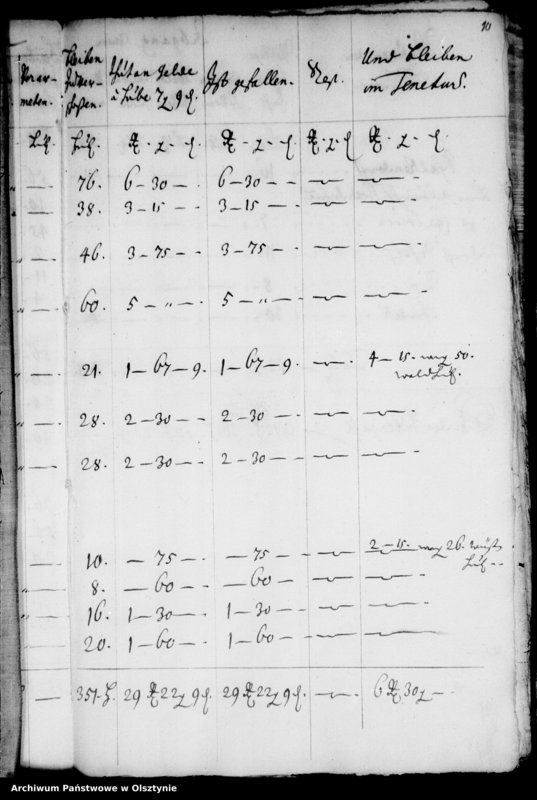 10
Verar-
meten.
bleiben
Zu Ver-
schoßen.
Thut an Gelde
à Hube 7 ₰ 9 ₰.
Ist gefallen.
Rest.
Und bleiben
im Tenetur.
Hub.
76. 6 – 30 –. 6 – 30 –
38. 3 – 15 –. 3 – 15 –
46. 3 – 75 –. 3 – 75 –
60. 5 – " –. 5 – " –
21. 1 – 67 – 9. 1 – 67 – 9. 4 – 15. weg. 50.
wald Hub.
28. 2 – 30 –. 2 – 30 –
28. 2 – 30 –. 2 – 30 –
10. – 75 –. – 75 –. 2 – 15. weg. 26. wüste
Hub.
8. – 60 –. – 60 –
16. 1 – 30 –. 1 – 30 –
20. 1 – 60 –. 1 – 60 –
351. H. 29 22 9 29 22 9 6 30
Archiwum Państwowe w Olsztynie